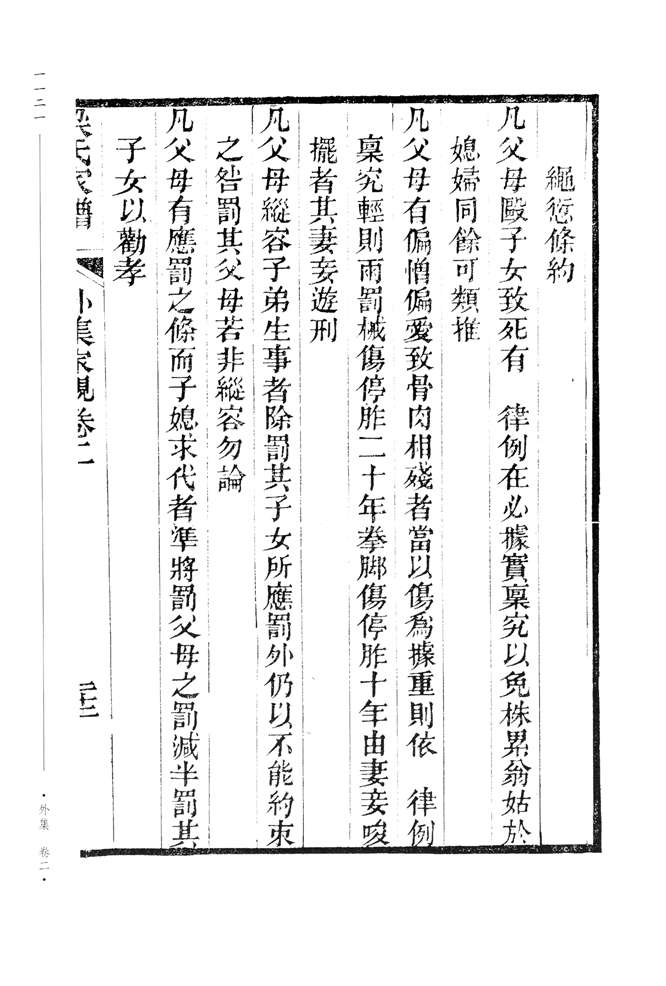 繩愆條約
凡父母毆子女致死有　律例在必據實稟究以免株累翁姑於
媳婦同餘可類推
凡父母有偏憎偏愛致骨肉相殘者當以傷爲據重則依　律例
稟究輕則兩罰械傷停胙二十年拳脚傷停胙十年由妻妾唆
擺者其妻妾遊刑
凡父母縱容子弟生事者除罰其子女所應罰外仍以不能約束
之咎罰其父母若非縱容勿論
凡父母有應罰之條而子媳求代者準將罰父母之罰減半罰其
子女以勸孝
梁氏家譜　外集家規卷二　二十二
一一二一
・外集　卷二・